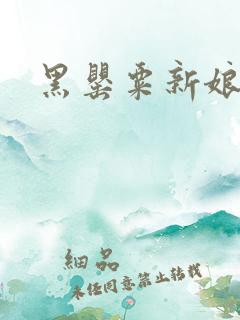 黑罂粟新娘
细品
未经同意禁止转载